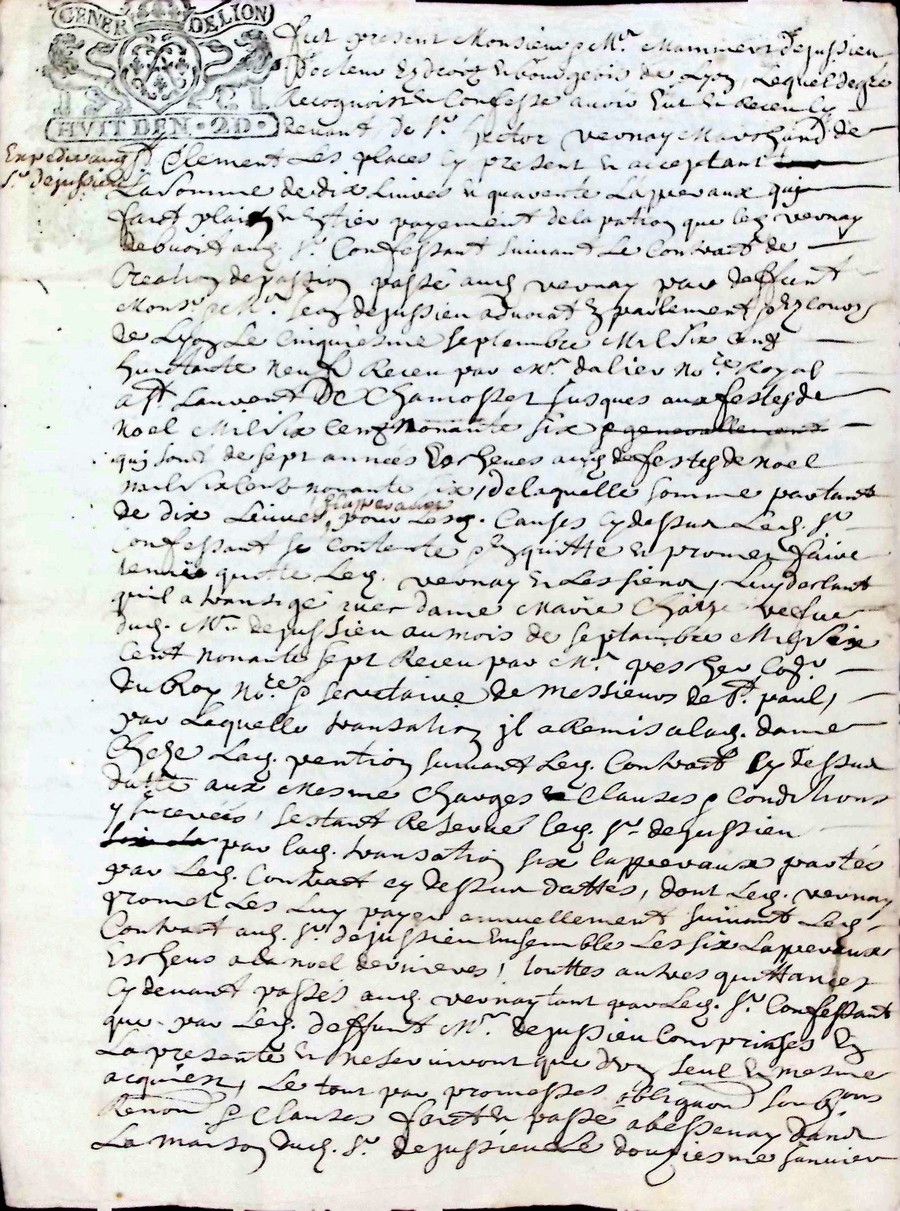 GENER DE LION
HVIT DEN · 2D ·
Expedié aud
Sr dejussieu
Fut present Monsieur Me Mammert Dejussieu
Docteur Ez droictz Et bourgeois de Lyon Lequel degré
Recognoist Et Confesse avoir Eut Et Receu Cy
devant de Sr hector vernay Marchand de
St Clement Les places Cy present Et acceptant
La Somme de dix Livres Et quarente Lappereaux quj
faict plain Et Entier payement de la pation que led vernay
devoit aud. Sr Confessant Suivant Le Contract de
Creation de pastion passé aud vernay par deffunt
Monsr Me Jean dejussieu advocat En parlement Ez Cours
de Lyon Le Cinquiesme Septembre Mil Six Cent
huictante neuf Receu par Me dalier Nore Royal
a St Laurent De Chamosset Jusques aux festes de
Noel Mil Six Cent Nonante six generallement
quj sont de Sept années Escheues aud festes de Noel
mil Six Cent nonante six, de laquelle Somme partant
de dix Livres, & lappereaux pour Lesd. Causes Cy dessus Led. Sr
Confessant Se Contente quitte Et promet faire
tenir quitte Led. vernay Et Les siens, Luy declarant
qu'il a transigé avec dame Marie Chaize vefve
dud. Me dejussieu au mois de Septembre Mil Six
Cent Nonante Sept Receu par Me pescher Cosr
du Roy Nore & Secretaire de Messieurs de St paul,
par Laquelle transation jl a Remis a lad. dame
Cheze Lad. pention Suivant Led. Contract Cy dessus
datté aux Mesme Charges Et Clauses & Conditions
y Incerées, Sestant Reservé led. Sr dejussieu
par lad. transation six lappereaux portés
par Led. Contract cy dessus dattés, dont Led. vernay
promet Les Luy payer annuellement Suivant Led.
Contract aud. Sr dejussieu Ensembles Les six Lappereaux
Escheus a la noel dernieres, touttes autres quittances
Cy devant passés aud. vernay tant par Led. Sr Confessant
que par Led. deffunt Me dejussieu Comprinses En
La presente Et ne Serviront que dun Seul Et mesme
acquiest, Le tout par promesses obligaon Soubzons
Renon & Clauses faict Et passé a bessenay dans
La maison dud. Sr dejussieu Le douziesme Janvier